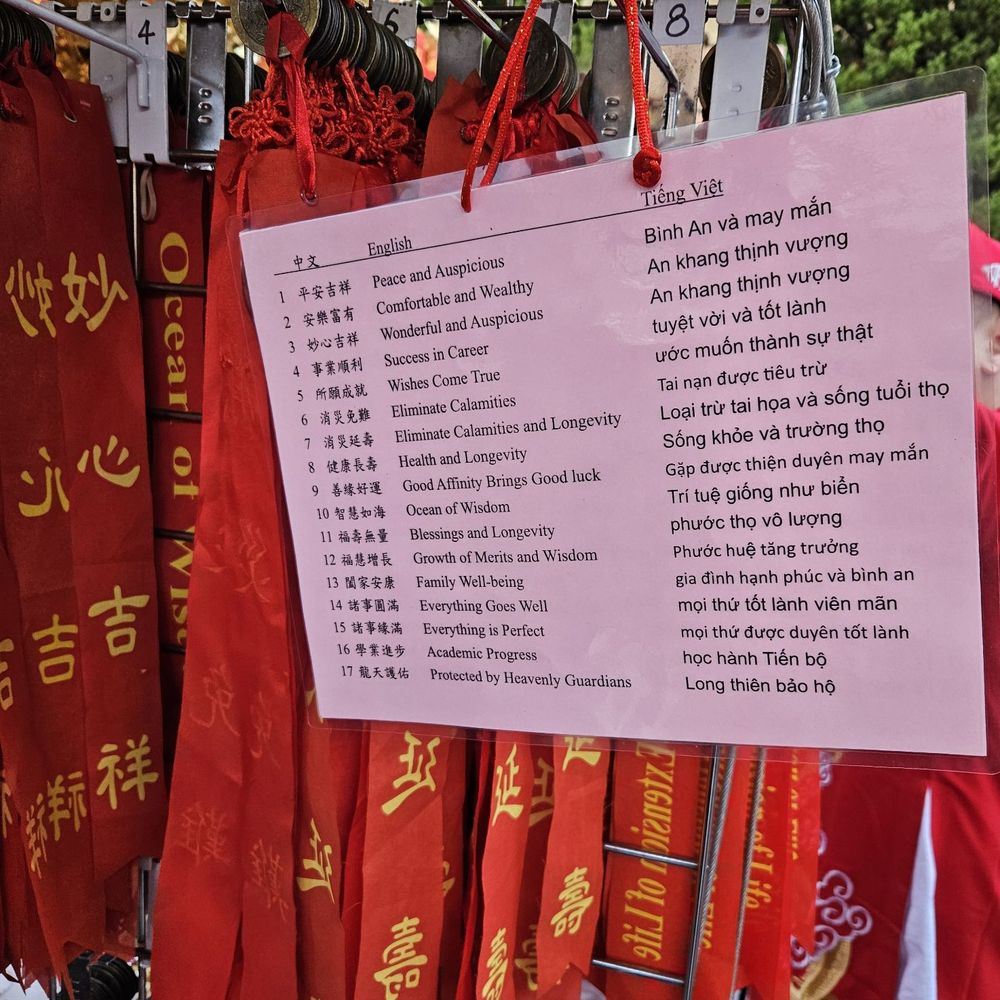 4
6
7
8
中文 English Tiếng Việt
1 平安吉祥 Peace and Auspicious Bình An và may mắn
2 安樂富有 Comfortable and Wealthy An khang thịnh vượng
3 妙心吉祥 Wonderful and Auspicious An khang thịnh vượng
4 事業順利 Success in Career tuyệt vời và tốt lành
5 所願成就 Wishes Come True ước muốn thành sự thật
6 消災免難 Eliminate Calamities Tai nạn được tiêu trừ
7 消災延壽 Eliminate Calamities and Longevity Loại trừ tai họa và sống tuổi thọ
8 健康長壽 Health and Longevity Sống khỏe và trường thọ
9 善緣好運 Good Affinity Brings Good luck Gặp được thiện duyên may mắn
10 智慧如海 Ocean of Wisdom Trí tuệ giống như biển
11 福壽無量 Blessings and Longevity phước thọ vô lượng
12 福慧增長 Growth of Merits and Wisdom Phước huệ tăng trưởng
13 闔家安康 Family Well-being gia đình hạnh phúc và bình an
14 諸事圓滿 Everything Goes Well mọi thứ tốt lành viên mãn
15 諸事緣滿 Everything is Perfect mọi thứ được duyên tốt lành
16 學業進步 Academic Progress học hành Tiến bộ
17 龍天護佑 Protected by Heavenly Guardians Long thiên bảo hộ
妙心吉祥
Ocean of Wis
延壽
延壽
壽
Extension of Life
of Life